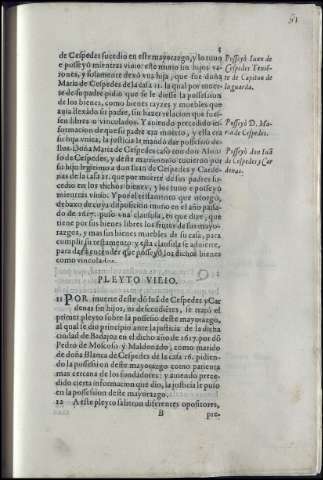 5
de Cespedes sucedio en este mayorazgo, y lo tuuo
e posseyò mientras viuio: este murio sin hijos va-
rones, y solamente dexò vna hija, que fue doña
Maria de Cespedes de la casa 21. la qual por muer-
te de su padre pidio que se le diesse la possession
de los bienes, como bienes rayzes y muebles que
auia dexado su padre, sin hazer relacion que fues-
sen libres o vinculados. Y auiendo precedido in-
formacion de que su padre era muerto, y ella era
su hija vnica, la justicia le mandò dar possession de
llos. Doña Maria de Cespedes casò con don Alonso
de Cespedes, y deste matrimonio tuuieron por
su hijo legitimo a don Iuan de Cespedes y Carde-
nas de la casa 25. que por muerte de sus padres su-
cedio en los dichos bienes, y los tuuo e posseyò
mientras viuio. Y por el testamento que otorgò,
debaxo de cuya disposicion murio en el año passa-
do de 1617. puso vna clausula, en que dize, que
tiene por sus bienes libres los frutos de sus mayo-
razgos, y mas sus bienes muebles de su casa, para
cumplir su testamento: y esta clausula se aduierte,
para dar a entender que posseyò los dichos bienes
como vinculados.
Posseyò Iuan de
Cespedes Tenie-
te de Capitan de
la guarda.
Posseyò D. Ma-
ria de Cespedes.
Posseyò don Iuã
de Cespedes y Car
denas.
PLEYTO VIEIO.
11 POR muerte deste dõ Iuã de Cespedes y Car
denas sin hijos, ni descendiẽtes, se tratò el
primer pleyto sobre la possessiõ deste mayorazgo,
al qual se dio principio ante la justicia de la dicha
ciudad de Badajoz en el dicho año de 1617. por dõ
Pedro de Moscoso y Maldonado, como marido
de doña Blanca de Cespedes de la casa 26. pidien-
do la possession deste mayorazgo como parienta
mas cercana de los fundadores: y auiendo prece-
dido cierta informacion que dio, la justicia le puso
en la possession deste mayorazgo.
12 A este pleyto salieron diferentes opositores,
B
pre-